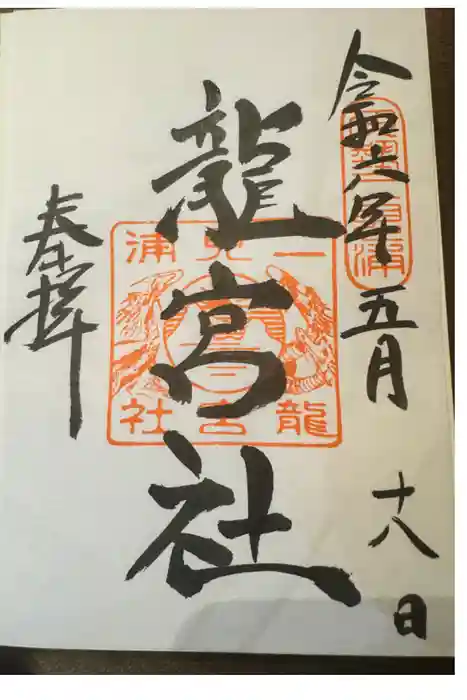 令和六年五月十八日
龍宮社
奉拝
二見浦
龍宮社